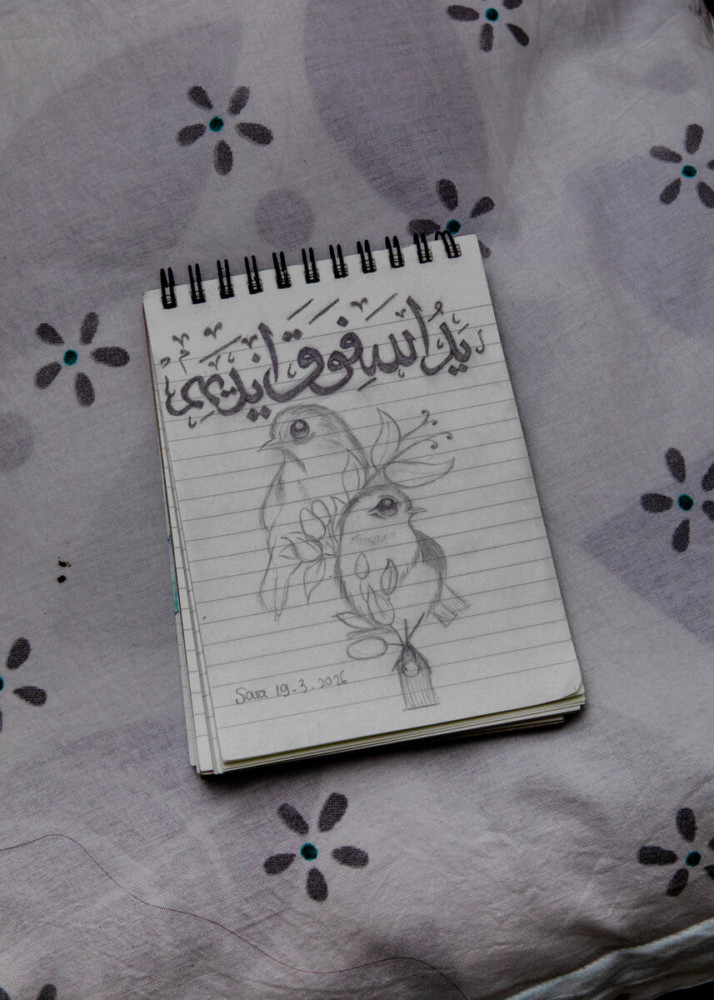 يَدُ الله فَوقَ ايديهِم
Sara 19.3.2026